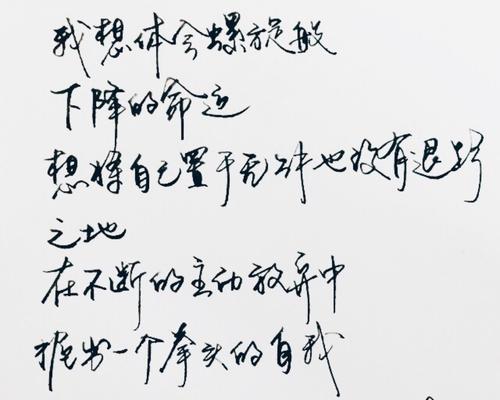 我想体会螺旋般
下降的命运
想将自己置于无上升也没有退路
之地
在不断的主动放弃中
挖出一个拳头的自我